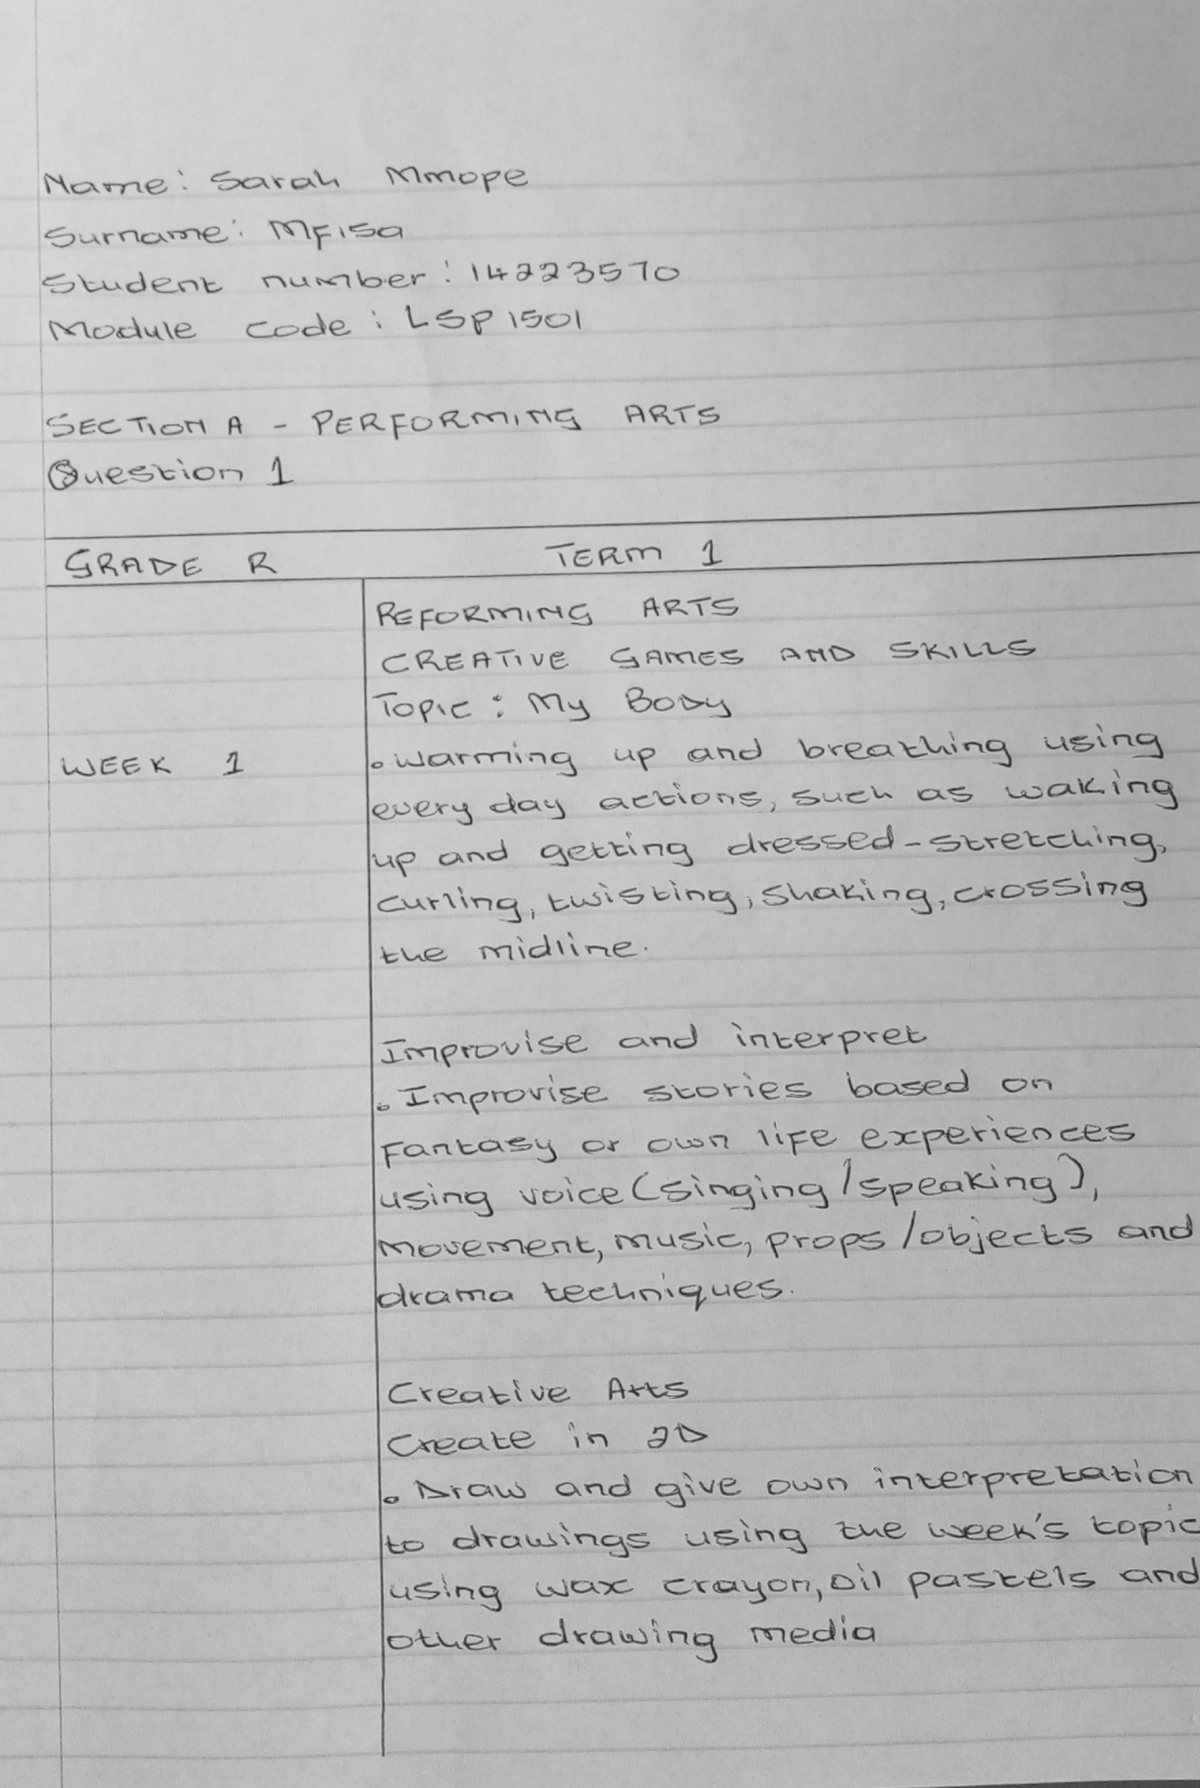 Name: Sarah Mmope
Surname: Mfisa
Student number: 14223570
Module code: LSP1501
SECTION A - PERFORMING ARTS
Question 1
GRADE R TERM 1
REFORMING ARTS
CREATIVE GAMES AND SKILLS
Topic: My Body
WEEK 1 • Warming up and breathing using
every day actions, such as waking
up and getting dressed - stretching,
curling, twisting, shaking, crossing
the midline.
Improvise and interpret
• Improvise stories based on
fantasy or own life experiences
using voice (singing/speaking),
movement, music, props/objects and
drama techniques.
Creative Arts
Create in 2D
• Draw and give own interpretation
to drawings using the week's topic
using wax crayon, oil pastels and
other drawing media